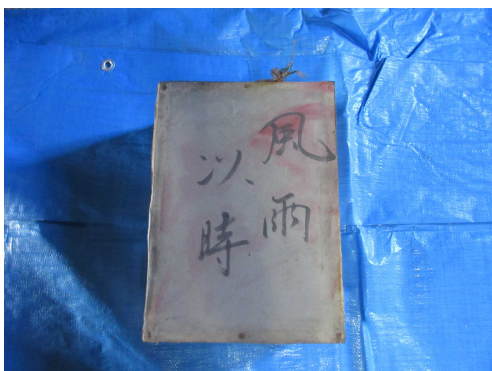 風雨
以時